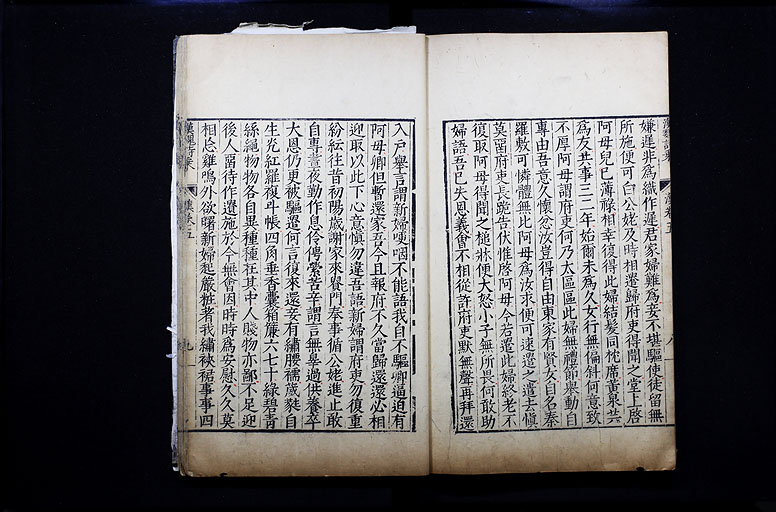 漢魏詩乘 漢卷五 八
嫌遲非為織作遲君家婦難為妾不堪驅使徒留無
所施便可白公姥及時相遣歸府吏得聞之堂上啓
阿母兒已薄祿相幸復得此婦結髮同枕席黃泉共
為友共事三二年始爾未為久女行無偏斜何意致
不厚阿母謂府吏何乃太區區此婦無禮節舉動自
專由吾意久懷忿汝豈得自由東家有賢女自名秦
羅敷可憐體無比阿母為汝求便可速遣之遣去慎
莫留府吏長跪告伏惟啓阿母今若遣此婦終老不
復取阿母得聞之槌牀便大怒小子無所畏何敢助
婦語吾已失恩義會不相從許府吏默無聲再拜還
入戶舉言謂新婦哽咽不能語我自不驅卿逼迫有
阿母卿但暫還家吾今且報府不久當歸還還必相
迎取以此下心意慎勿違吾語新婦謂府吏勿復重
紛紜往昔初陽歲謝家來貴門奉事循公姥進止敢
自專晝夜勤作息伶俜縈苦辛謂言無辠過供養卒
大恩仍更被驅遣何言復來還妾有繡腰襦葳蕤自
生光紅羅複斗帳四角垂香囊箱簾六七十綠碧青
絲繩物物各自異種種在其中人賤物亦鄙不足迎
後人留待作遺施於今無會因時時為安慰久久莫
相忘雞鳴外欲曙新婦起嚴粧著我繡裌裙事事四
漢魏詩乘 漢卷五 九